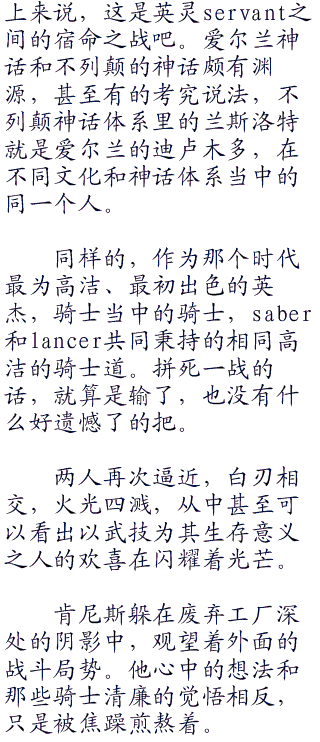 上来说，这是英灵servant之
间的宿命之战吧。爱尔兰神
话和不列颠的神话颇有渊
源，甚至有的考究说法，不
列颠神话体系里的兰斯洛特
就是爱尔兰的迪卢木多，在
不同文化和神话体系当中的
同一个人。
同样的，作为那个时代
最为高洁、最初出色的英
杰，骑士当中的骑士，saber
和lancer共同秉持的相同高
洁的骑士道。拼死一战的
话，就算是输了，也没有什
么好遗憾了的把。
两人再次逼近，白刃相
交，火光四溅，从中甚至可
以看出以武技为其生存意义
之人的欢喜在闪耀着光芒。
肯尼斯躲在废弃工厂深
处的阴影中，观望着外面的
战斗局势。他心中的想法和
那些骑士清廉的觉悟相反，
只是被焦躁煎熬着。